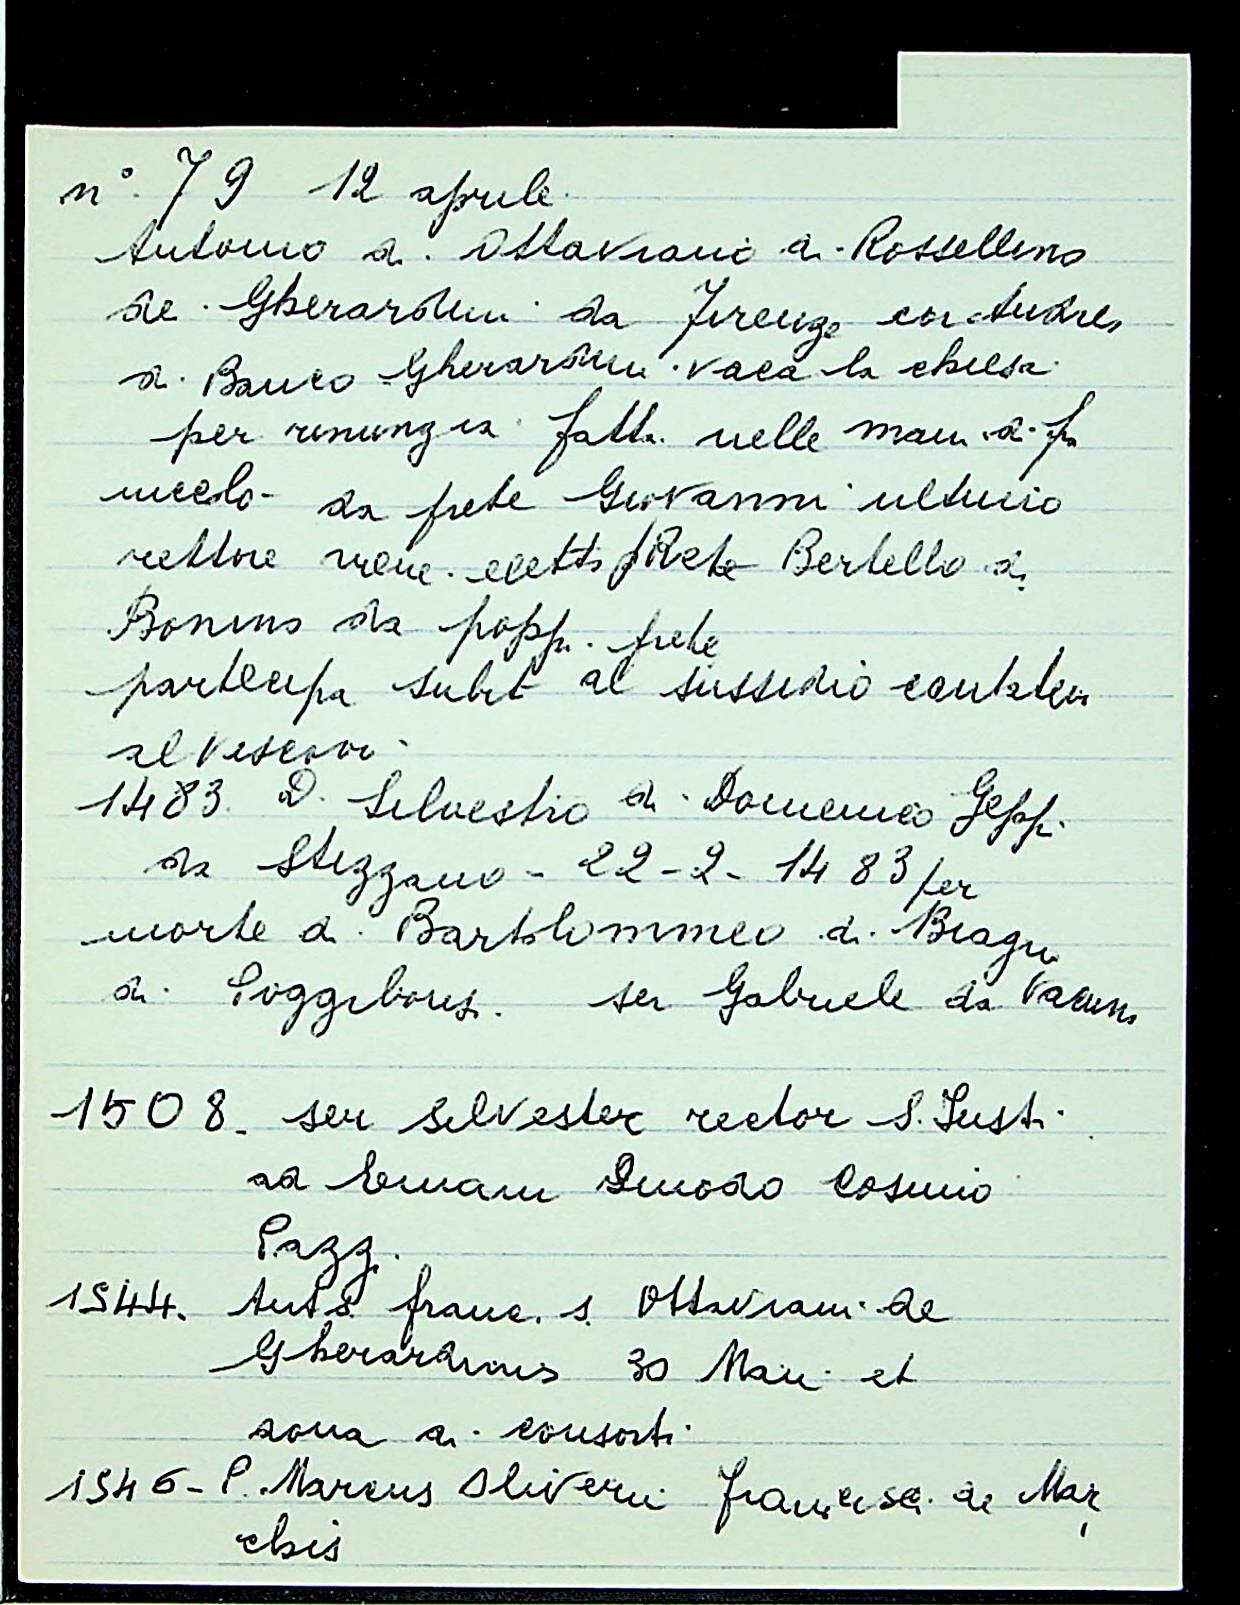 n°. 79 12 aprile.
Antonio di Ottaviano di Rossellino
de Gherardini da Firenze con Andrea
di Banco Gherardini. vaca la chiesa
per rinunzia fatta nelle mani di fra
niccolo da prete Giovanni ultimo
rettore viene eletto prete Bertello di
Bonino da poppi. prete
partecipa subit al sussidio caritativo
al Vescovo
1483. D. Silvestro di Domenico Geppi
da Stezzano - 22-2-1483 per
morte di Bartolommeo di Biagio
di Poggibonsi. ser Gabriele da
1508. ser Silvester rector S. Justi
ad Emam Sinodo Cosimo
Pazzi.
1544. Ant.s franc. s. Ottaviani de
Gherardinis 30 Maii et
dona di consorti
1546 - P. Marcus Oliverii Francisci de Mar
chis